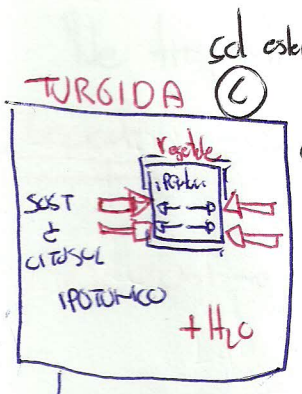 sol ester
TURGIDA
C
Vegetale
SOST
è
CITOSOL
IPOTONICO
+ H₂O